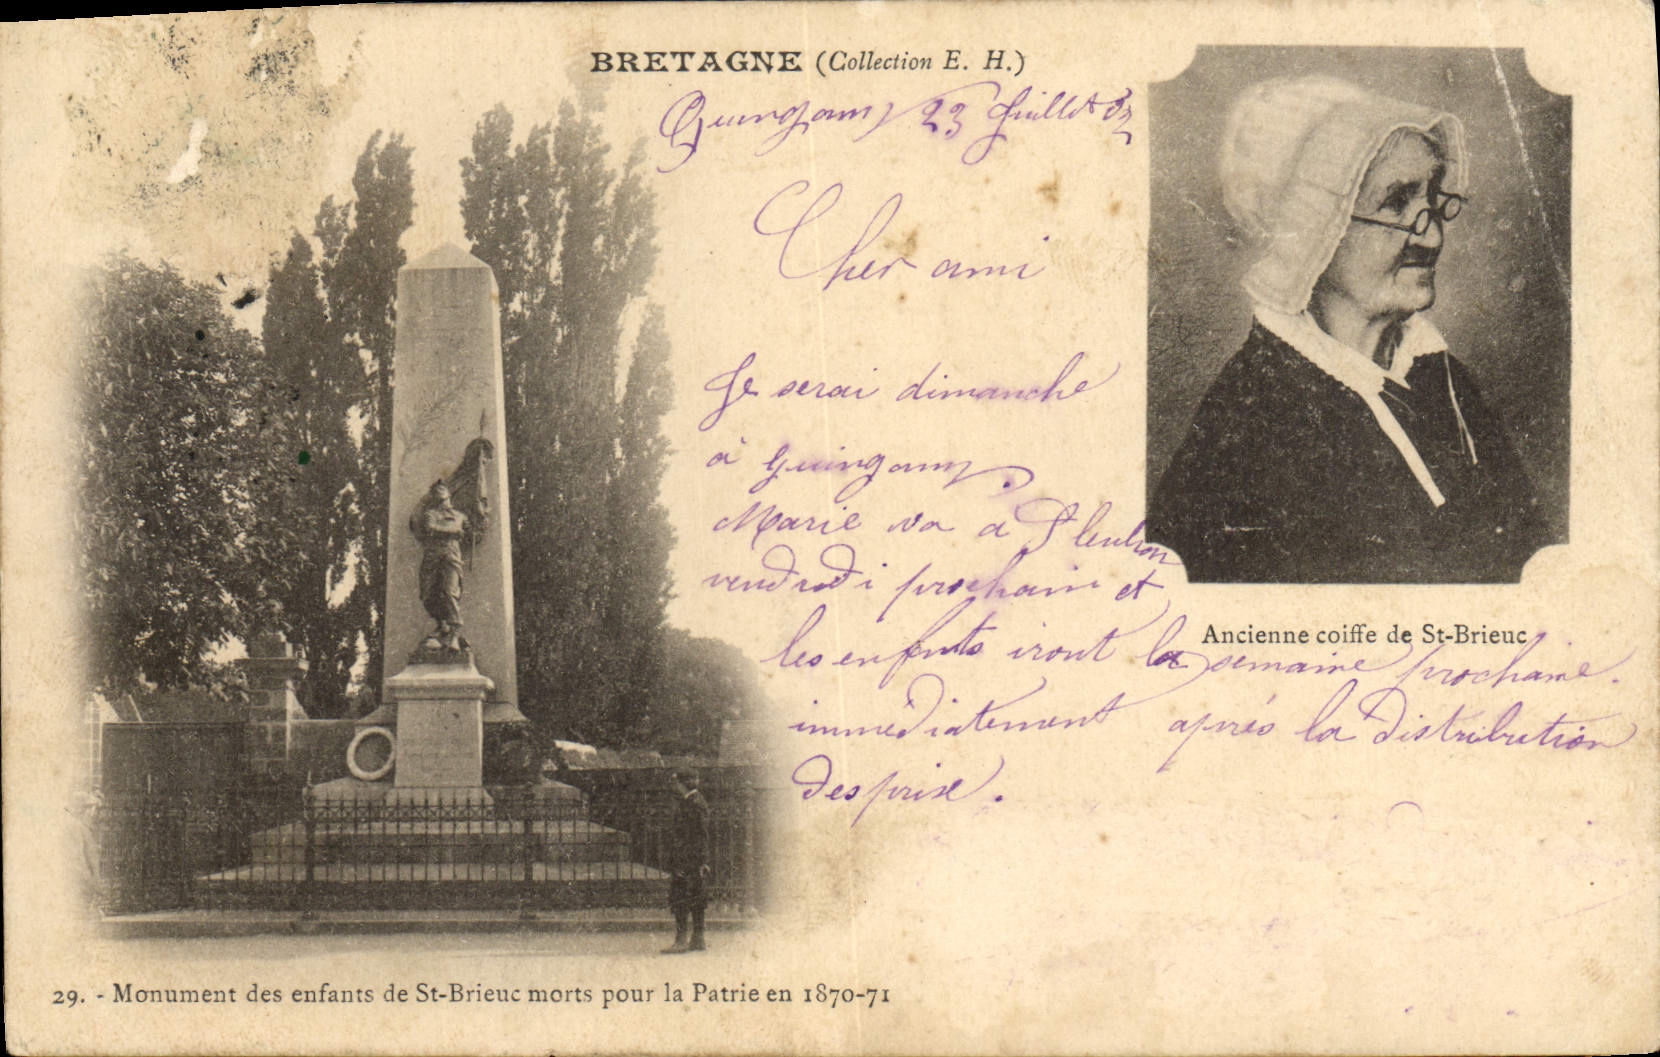 BRETAGNE (Collection E. H.)
Guingamp 23 Juillet
Cher ami
Je serai dimanche
à Guingamp.
Marie va a
vendredi prochain et
les enfants iront la semaine prochaine.
immédiatement après la distribution
des prix.
Ancienne coiffe de St-Brieuc
29. - Monument des enfants de St-Brieuc morts pour la Patrie en 1870-71